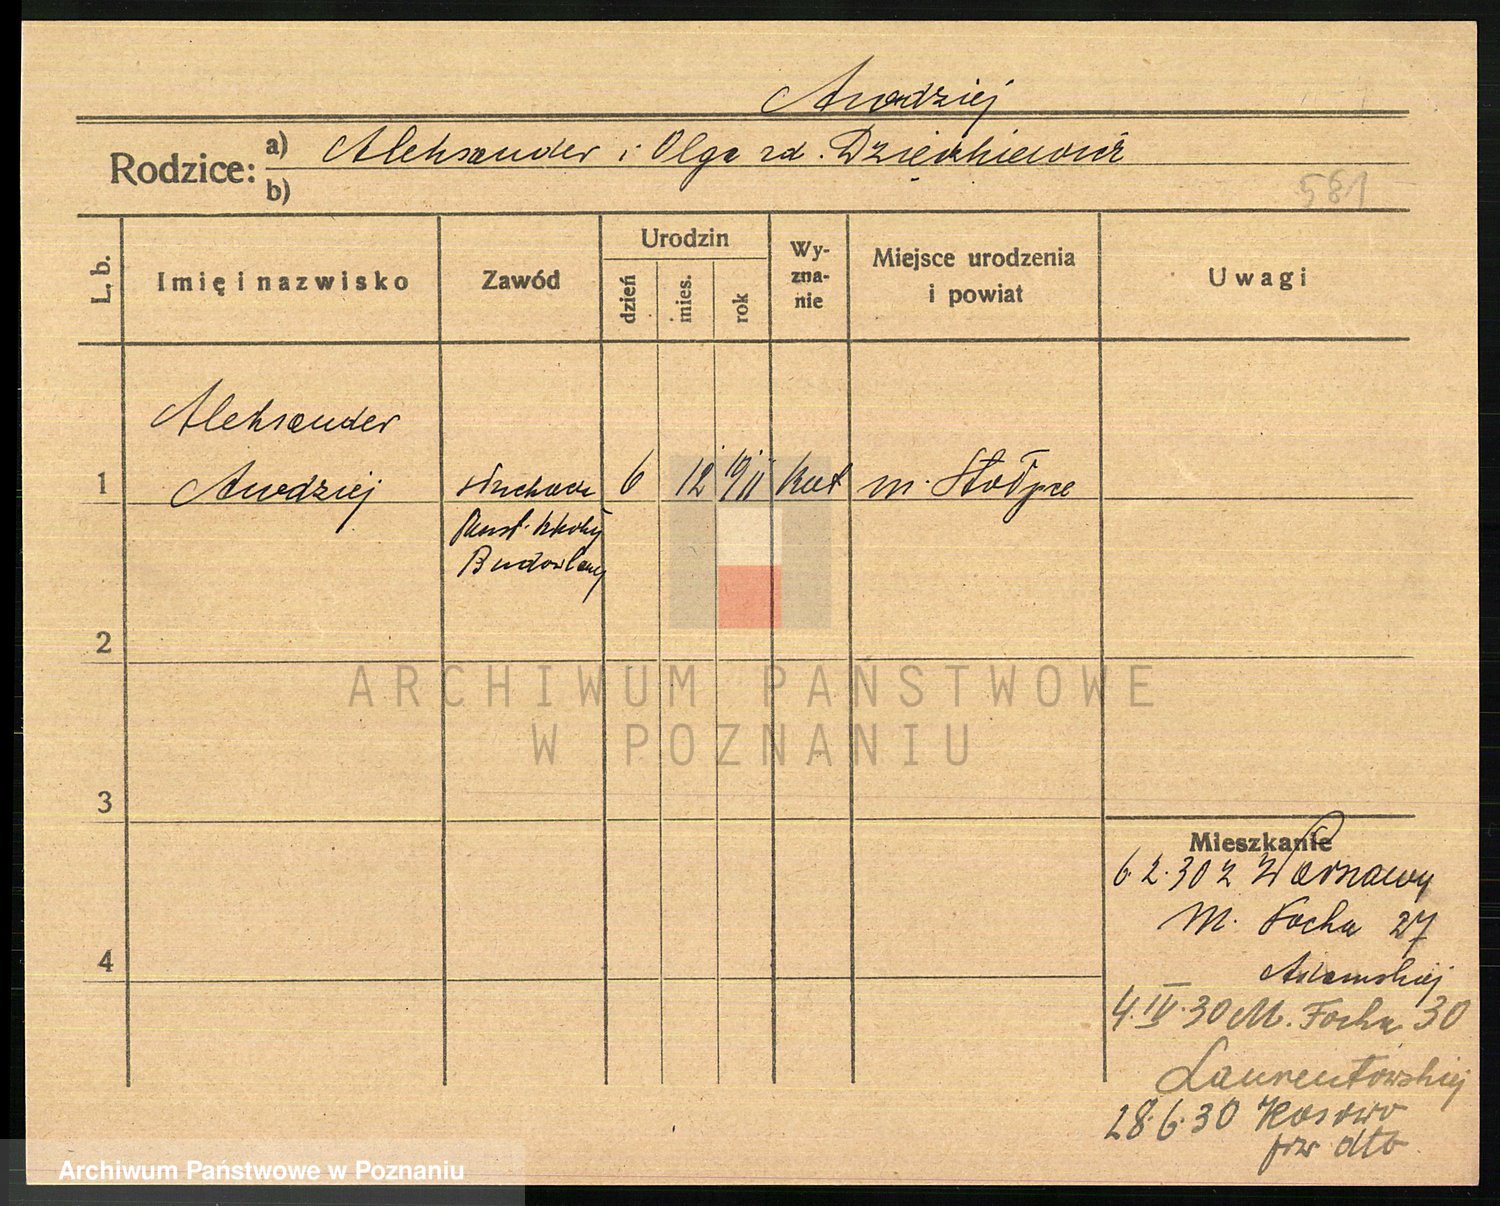 Anodziej
Rodzice: a) Aleksander i Olga zd. Dzieckiewicz
b)
581
L. b. Imię i nazwisko Zawód Urodzin dzień mies. rok Wy-zna-nie Miejsce urodzenia i powiat Uwagi
Aleksander
1 Anodziej słuchacz 6 12 1911 kat m. Stołpce
Państ. szkoły
Budowlany
2
3
4
ARCHIWUM PAŃSTWOWE
W POZNANIU
Mieszkanie
6.2.30 z Warszawy
M. Focha 27
Adamskiej
4.IV.30 M. Focha 30
Laurentowskiej
28.6.30 Kosowo
pow dto
Archiwum Państwowe w Poznaniu